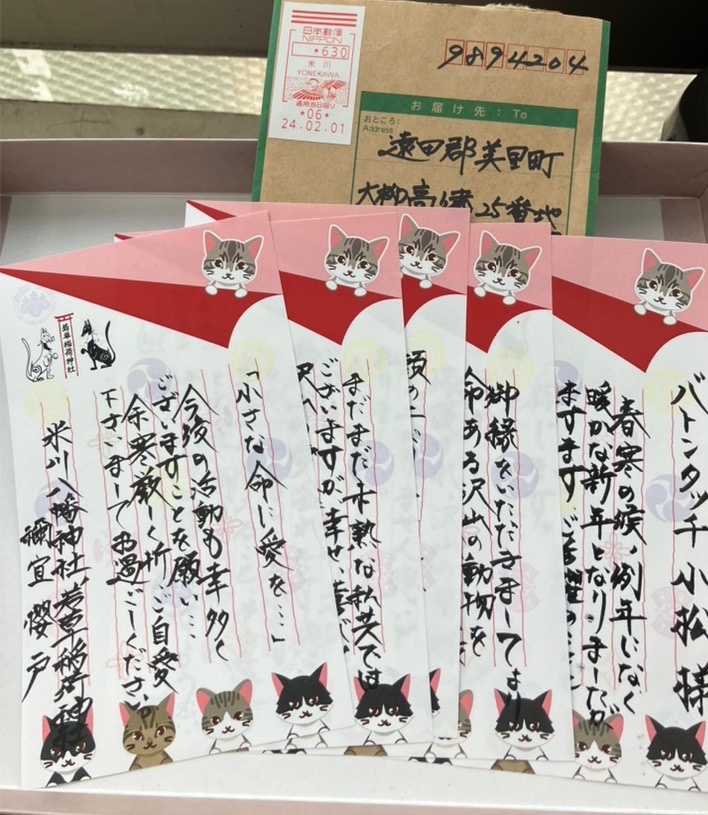 日本郵便
NIPPON
*630
米川
YONEKAWA
適用当日限り
*06*
24.02.01
9894204
お届け先：To
おところ：
Address
遠田郡美里町
25番地
バトンタッチ小松様
春寒の候、例年になく
暖かな新年となりましたが
ますます
御縁をいただきまして より
命ある沢山の動物を
まだまだ未熟な私共では
ございますが幸せ、
「小さな命に愛を…」
今後の活動も幸多く
ございますことを願い…
余寒厳しく折ご自愛
下さまして お過ごしください。
米川八幡神社 若草稲荷神社
禰宜 櫻戸
若草稲荷神社